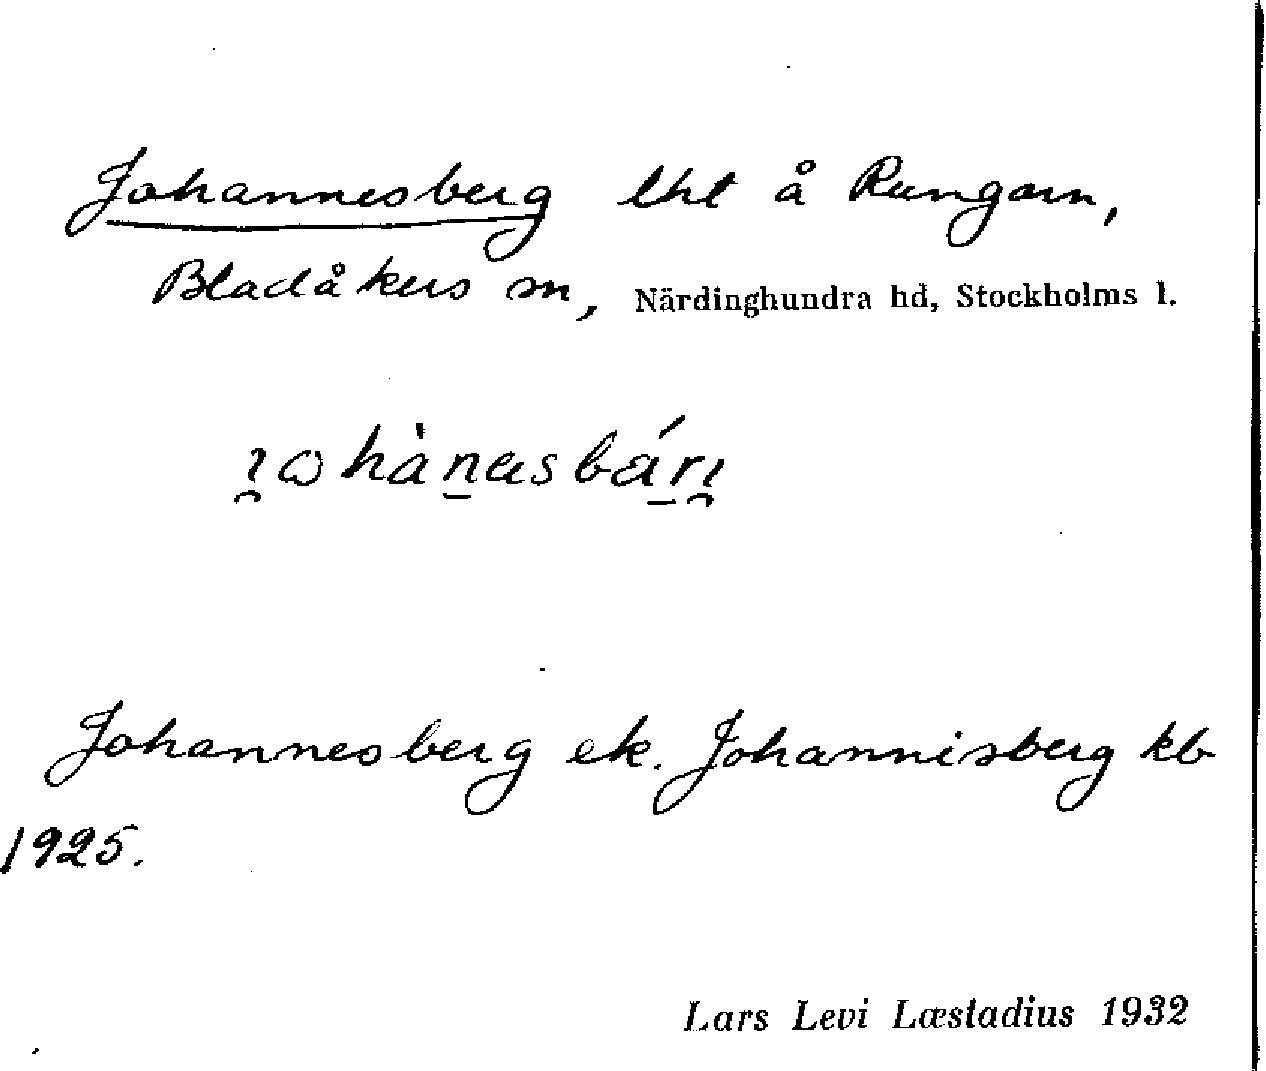 Johannesberg lht å Rungarn,
Bladåkers sn, Närdinghundra hd, Stockholms l.
Johannesberg ek. Johannisberg kb
1925.
Lars Levi Læstadius 1932